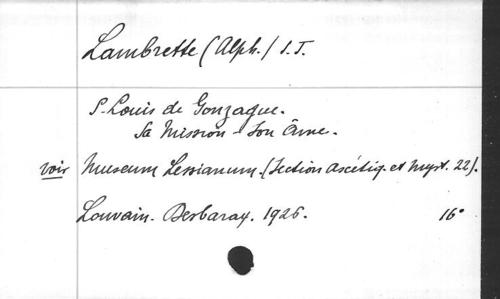 Lambrette (Alph.) S.J.
S. Louis de Gonzague.
Sa Mission - Son Âme.
voir Museum Lessianum. (Section ascétiq. et myst. 22).
Louvain. Desbarax. 1926. 16°